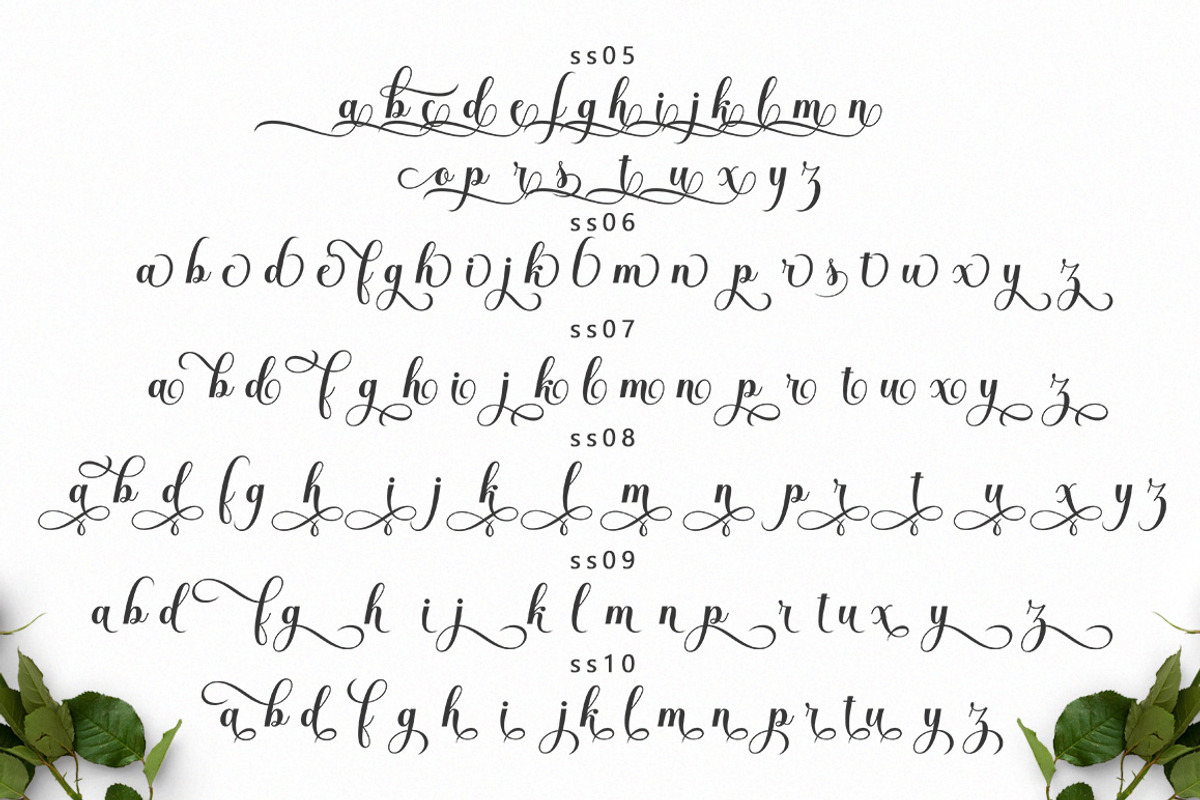 ss05
a b c d e f g h i j k l m n
o p r s t u x y z
ss06
a b c d e f g h i j k l m n p r s t u x y z
ss07
a b d f g h i j k l m n p r t u x y z
ss08
a b d f g h i j k l m n p r t u x y z
ss09
a b d f g h i j k l m n p r t u x y z
ss10
a b d f g h i j k l m n p r t u y z